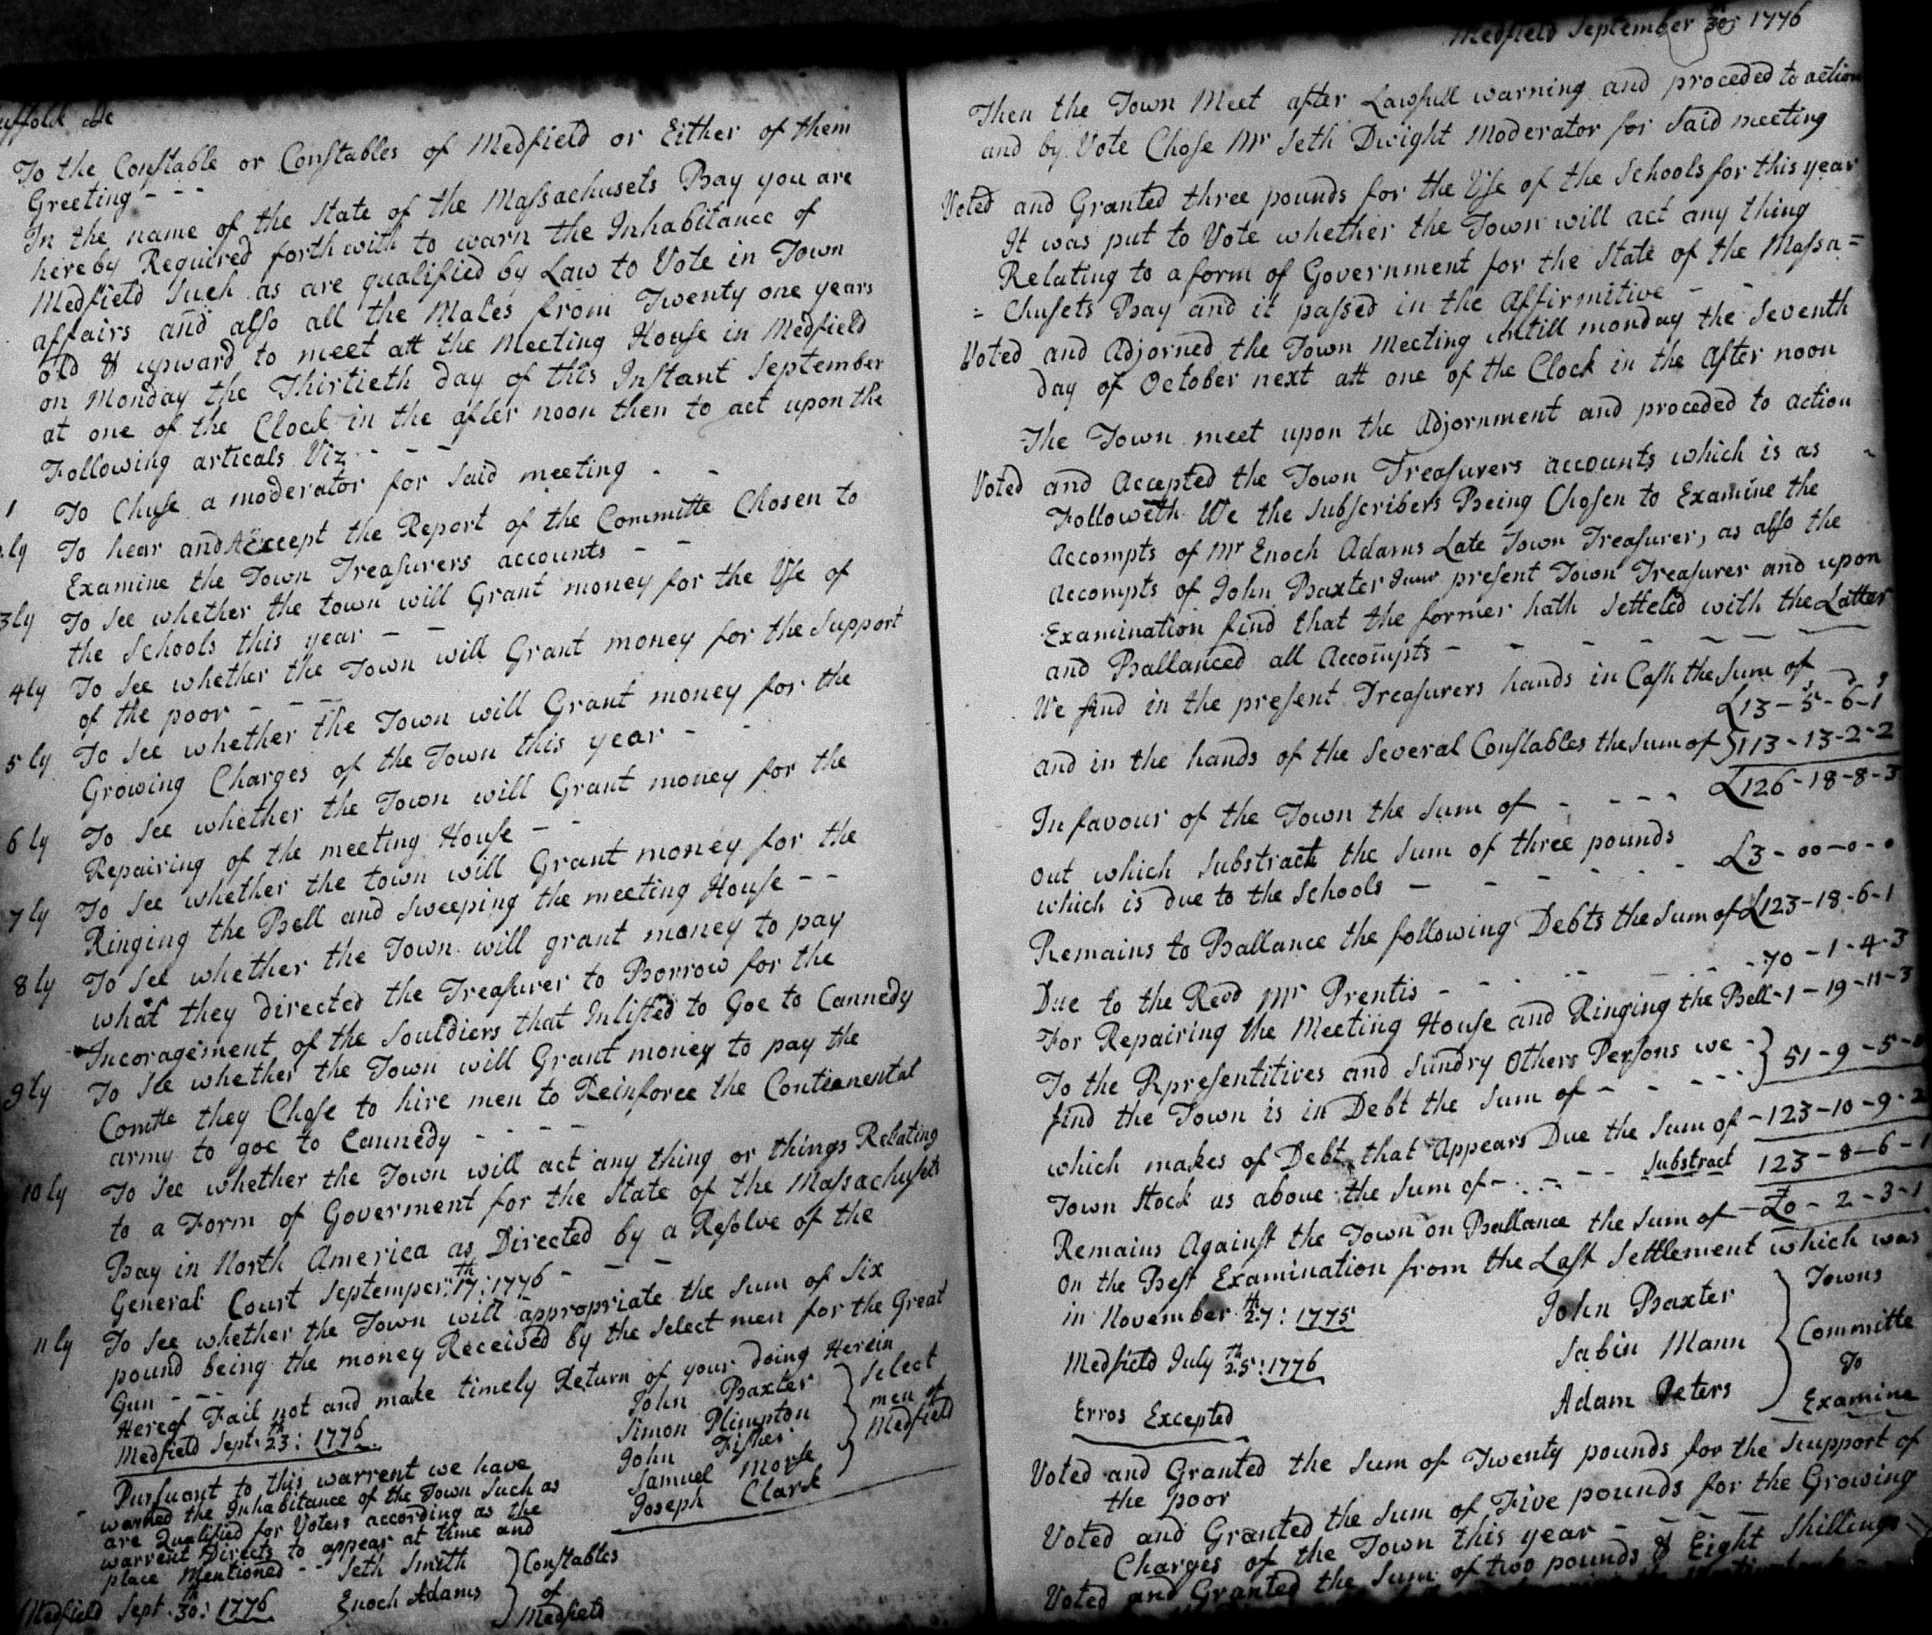 uffolk Sc
To the Constable or Constables of Medfield or Either of them
Greeting - - -
In the name of the State of the Massachusets Bay you are
hereby Required forthwith to warn the Inhabitance of
Medfield Such as are qualified by Law to Vote in Town
affairs and also all the Males from Twenty one years
old & upward to meet att the Meeting House in Medfield
on Monday the Thirtieth day of this Instant September
at one of the Clock in the after noon then to act upon the
Following articals Viz - - -
1 To Chuse a moderator for Said meeting - -
ly To hear and Except the Report of the Committe Chosen to
Examine the Town Treasurers accounts - -
3ly To See whether the town will Grant money for the Use of
the Schools this year - -
4ly To See whether the Town will Grant money for the Support
of the poor - - -
5ly To See whether the Town will Grant money for the
Growing Charges of the Town this year - -
6ly To See whether the Town will Grant money for the
Repairing of the meeting House - -
7ly To See whether the town will Grant money for the
Ringing the Bell and Sweeping the meeting House - -
8ly To See whether the Town will grant money to pay
what they directed the Treasurer to Borrow for the
Incoragement of the Souldiers that Inlisted to Goe to Cannedy
9ly To See whether the Town will Grant money to pay the
Comtte they Chose to hire men to Reinforce the Contienental
army to goe to Cannedy - - - -
10ly To See whether the Town will act any thing or things Relating
to a Form of Goverment for the State of the Massachusets
Bay in North America as Directed by a Resolve of the
General Court Septemper: 17th: 1776 - - -
11ly To See whether the Town will appropriate the Sum of Six
pound being the money Received by the Select men for the Great
Gun - - -
Hereof Fail not and make timely Return of your doing Herein
Medfield Sept: 23th: 1776
John Baxter
Simon Plimpton
John Fisher
Samuel Morse
Joseph Clark
Select
men of
Medfield
Pursuant to this warrent we have
warned the Inhabitance of the Town Such as
are Qualified for Voters according as the
warrent Directs to appear at time and
place Mentioned - - Seth Smith
Medfield Sept. 30th: 1776 Enoch Adams
Constables
of
Medfield
Medfield September 30 1776
Then the Town Meet after Lawfull warning and proceded to action
and by Vote Chose Mr Seth Dwight Moderator for Said meeting
Voted and Granted three pounds for the Use of the Schools for this year
It was put to Vote whether the Town will act any thing
Relating to a form of Government for the State of the Massa=
= Chusets Bay and it passed in the Affirmitive - -
Voted and Adjorned the Town Meeting untill monday the Seventh
day of October next att one of the Clock in the After noon
The Town meet upon the Adjornment and proceded to action
Voted and Accepted the Town Treasurers accounts which is as
Followeth We the Subscribers Being Chosen to Examine the
Accompts of Mr Enoch Adams Late Town Treasurer, as also the
Accompts of John Baxter Junr present Town Treasurer and upon
Examination find that the former hath Setteled with the Latter
and Ballanced all Accompts - - - - - - -
We find in the present Treasurers hands in Cash the Sum of
£13-5-6-1
and in the hands of the Several Constables the Sum of 113-13-2-2
In favour of the Town the Sum of - - - - £126-18-8-3
out which Substrackt the Sum of three pounds
which is due to the Schools - - - - - - £3-00-0-0
Remains to Ballance the following Debts the Sum of £123-18-6-1
Due to the Revd Mr Prentis - - - - - - - 70-1-4-3
For Repairing the Meeting House and Ringing the Bell - 1-19-11-3
To the Rpresentitives and Sundry Others Persons we
find the Town is in Debt the Sum of - - - - - 51-9-5-
which makes of Debt that Appears Due the Sum of - 123-10-9-2
Town Stock as above the Sum of - - - - Substract 123-8-6-
Remains Against the Town on Ballance the Sum of - £0-2-3-1
On the Best Examination from the Last Settlement which was
in November 27th: 1775
Medfield July 25th: 1776
Erros Excepted
John Baxter
Sabin Mann
Adam Peters
Towns
Committe
To
Examine
Voted and Granted the Sum of Twenty pounds for the Support of
the poor
Voted and Granted the Sum of Five pounds for the Growing
Charges of the Town this year - - - - -
Voted and Granted the Sum of two pounds & Eight Shillings